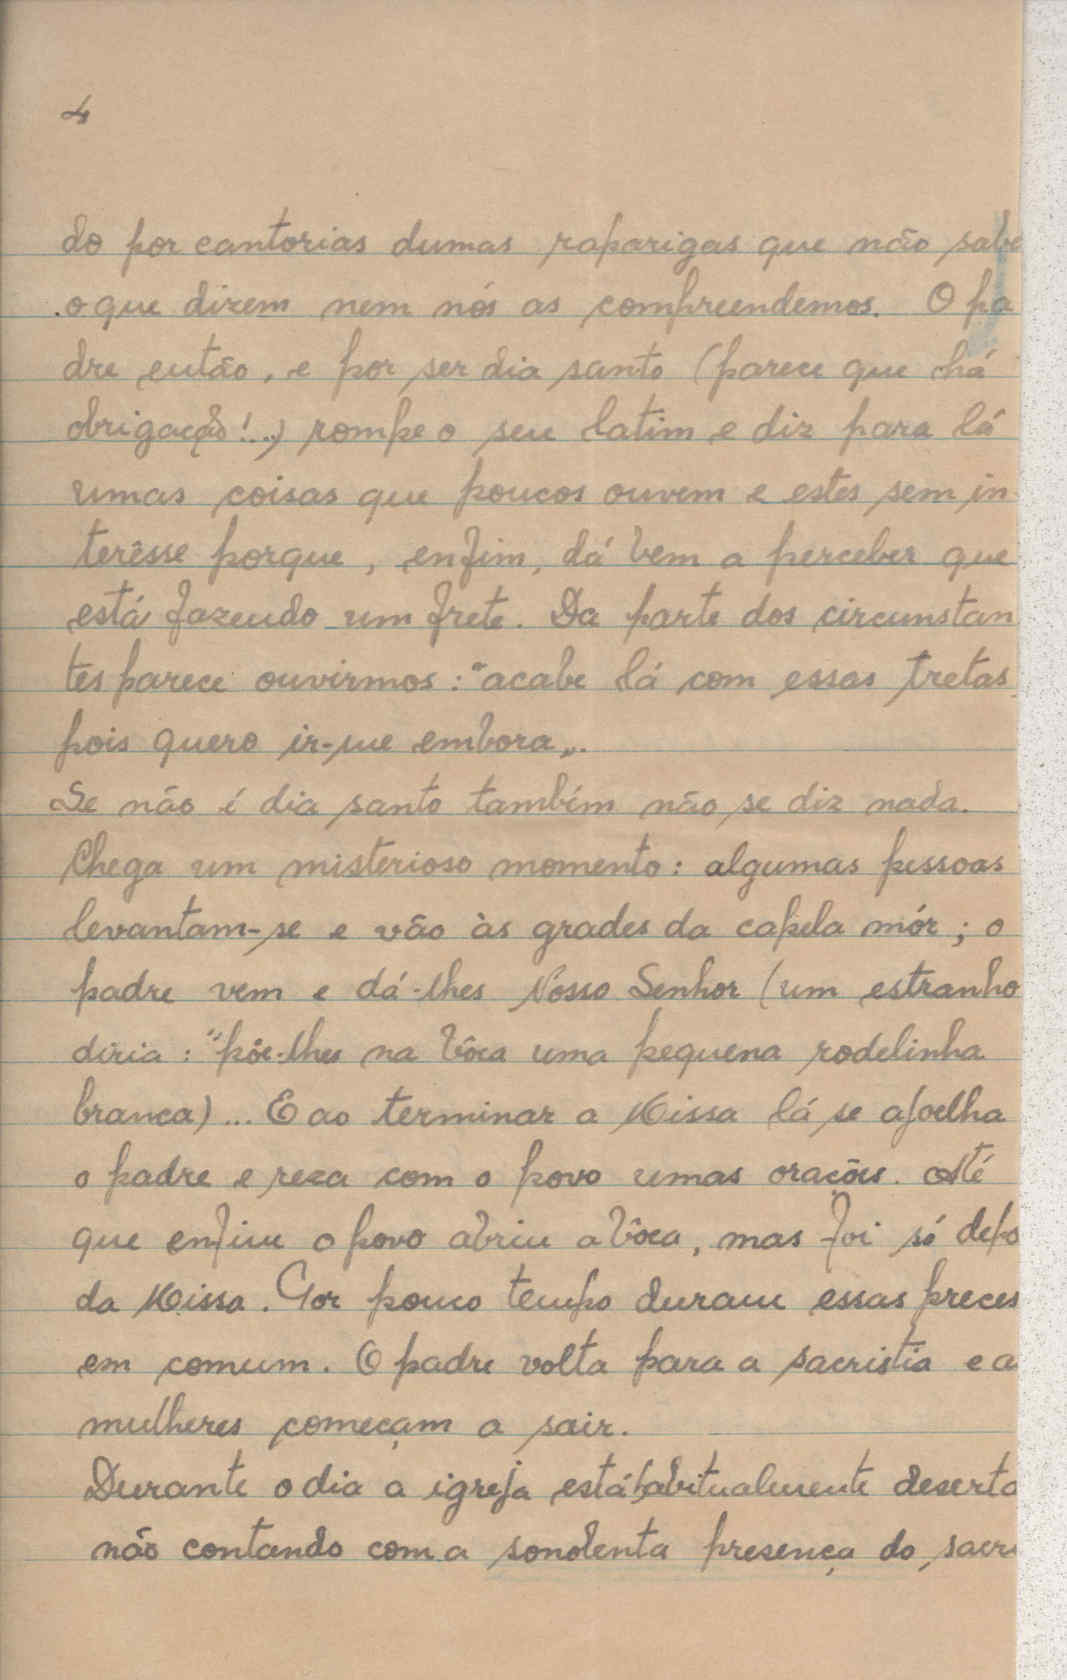 4
do por cantorias dumas raparigas que não sabe
o que dizem nem nós as compreendemos. O pa
dre então, e por ser dia santo (parece que há
obrigação!...) rompe o seu latim e diz para lá
umas coisas que poucos ouvem e estes sem in
terêsse porque, enfim, dá bem a perceber que
está fazendo um frete. Da parte dos circunstan
tes parece ouvirmos: "acabe lá com essas tretas
pois quero ir-me embora".
Se não é dia santo também não se diz nada.
Chega um misterioso momento: algumas pessoas
levantam-se e vão às grades da capela mór; o
padre vem e dá-lhes Nosso Senhor (um estranho
diria: "põe-lhes na bôca uma pequena rodelinha
branca)... E ao terminar a Missa lá se ajoelha
o padre e reza com o povo umas orações. Até
que enfim o povo abriu a bôca, mas foi só depo
da Missa. Por pouco tempo duram essas preces
em comum. O padre volta para a sacristia e a
mulheres começam a sair.
Durante o dia a igreja está habitualmente deserta
não contando com a sonolenta presença do sacri